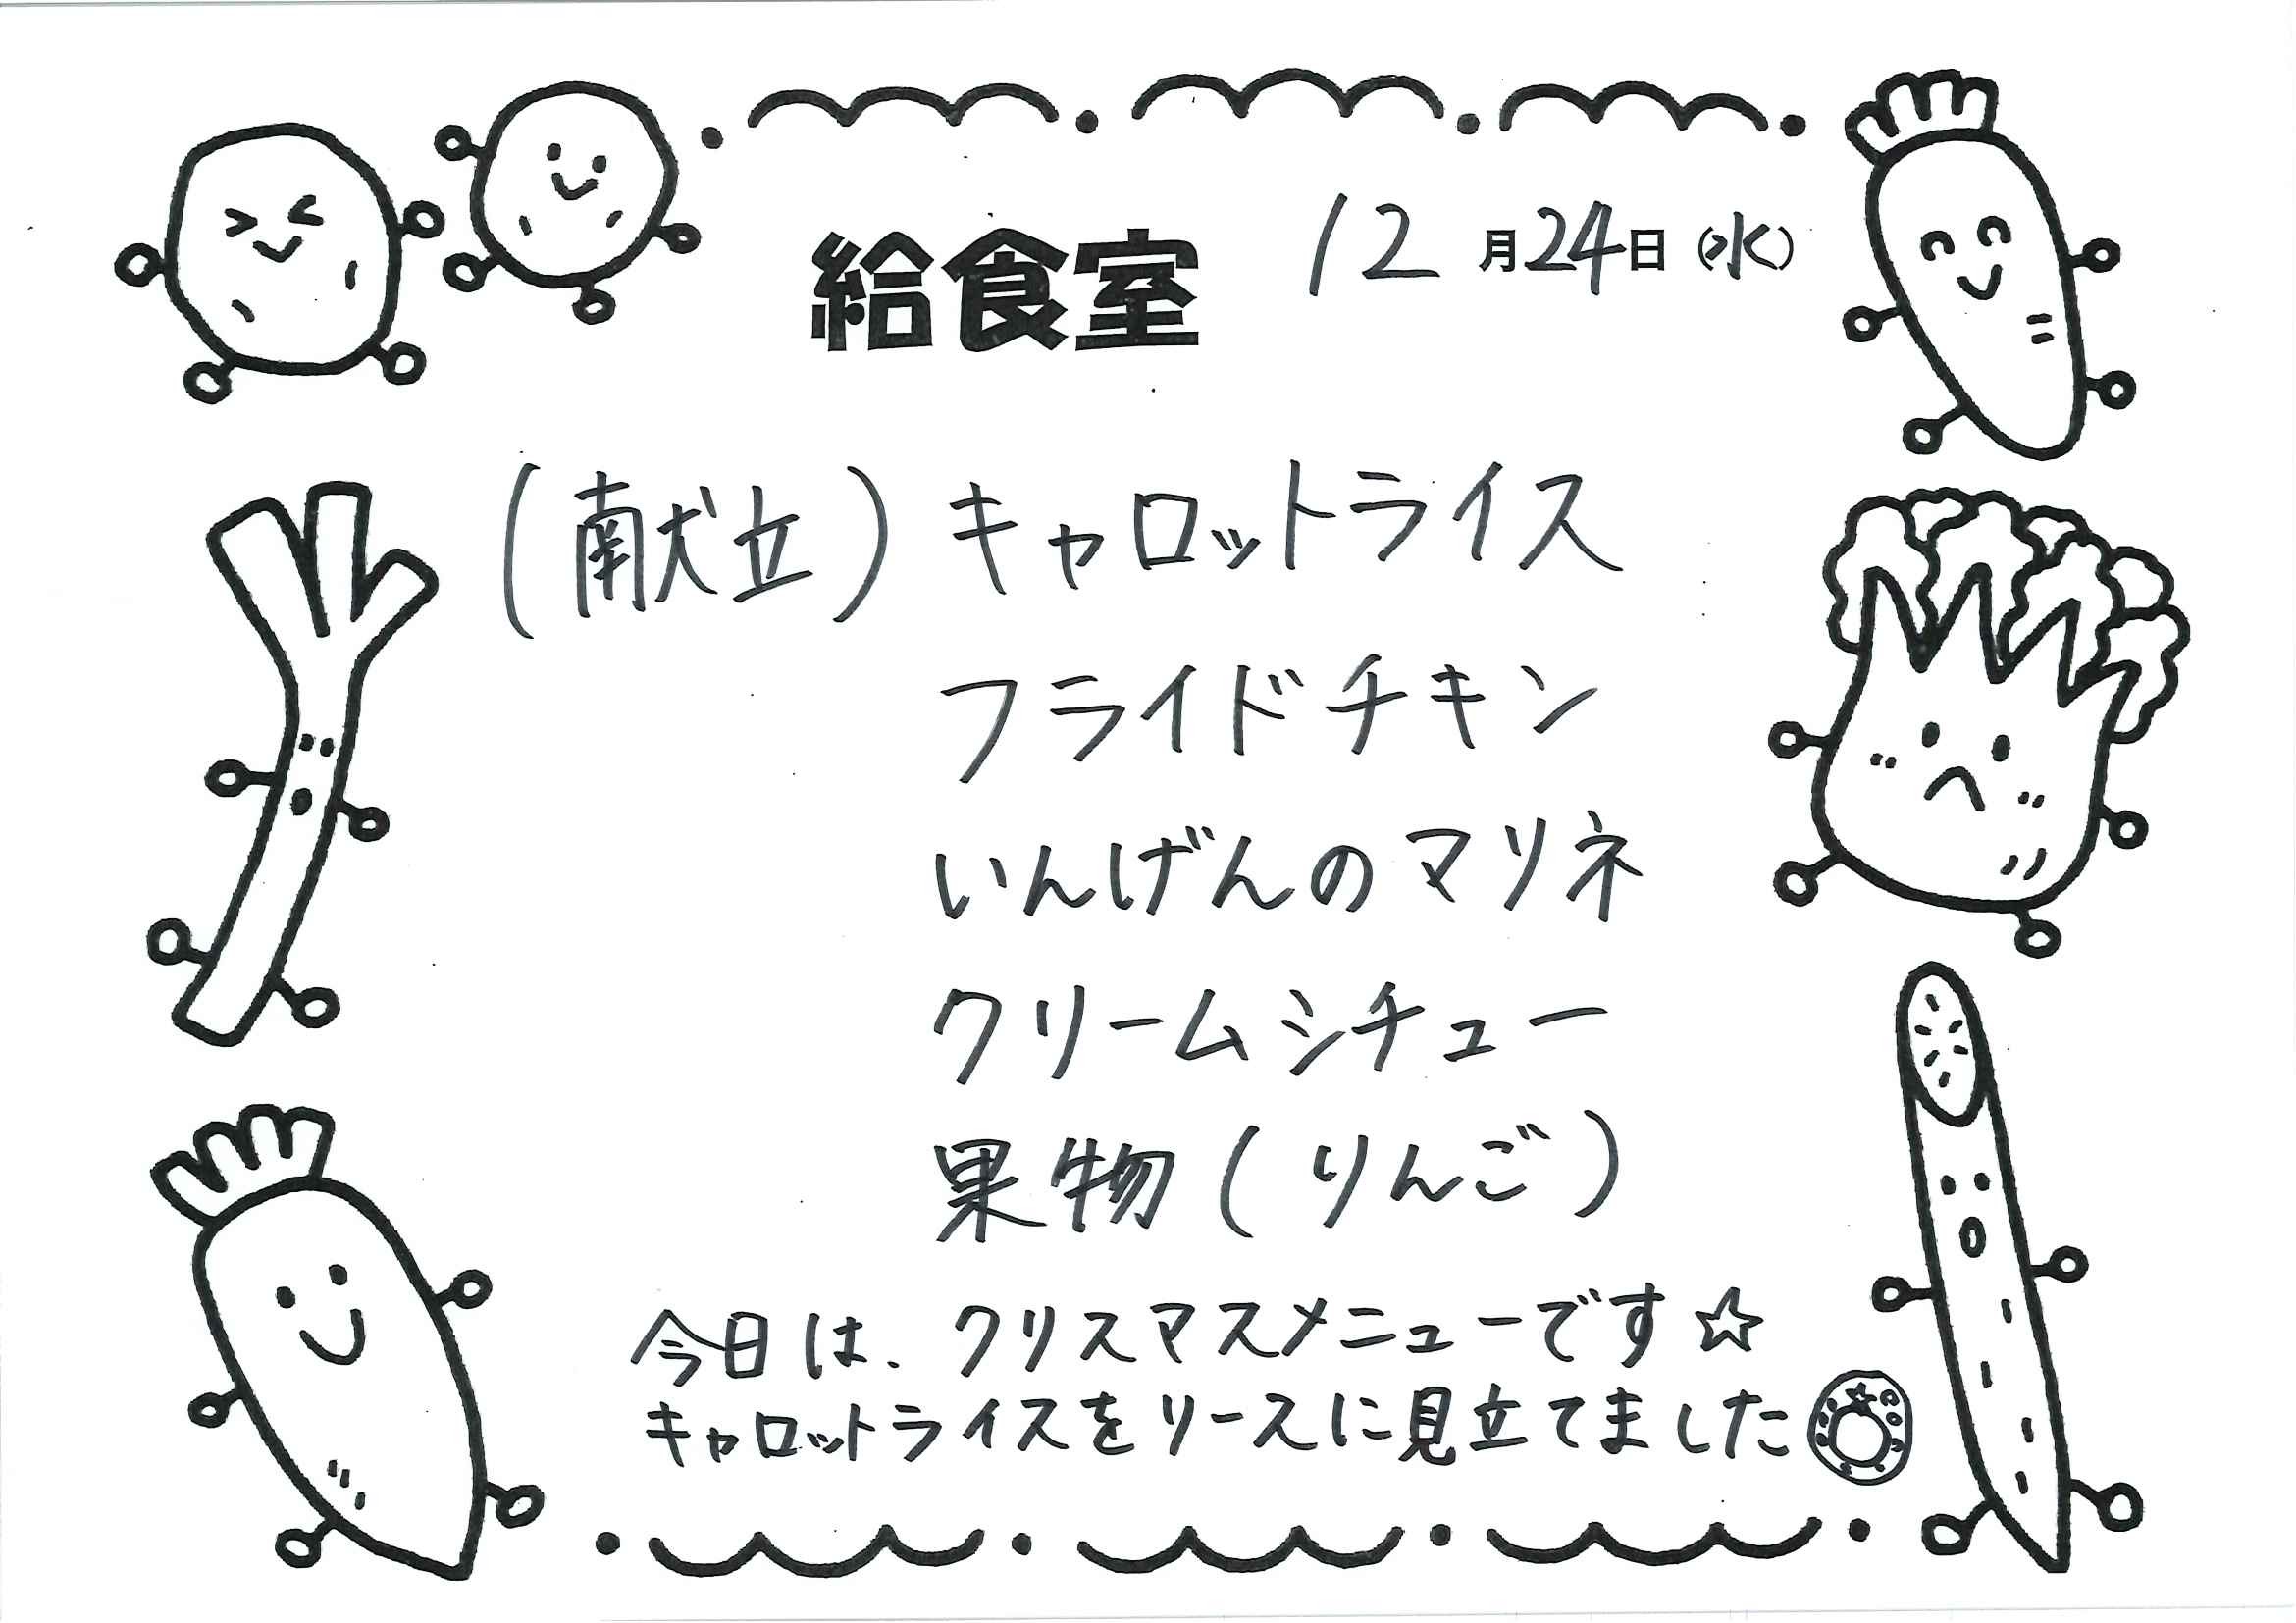 給食室 12月24日(水)
(献立) キャロットライス
フライドチキン
いんげんのマリネ
クリームシチュー
果物(りんご)
今日は、クリスマスメニューです☆
キャロットライスをリースに見立てました